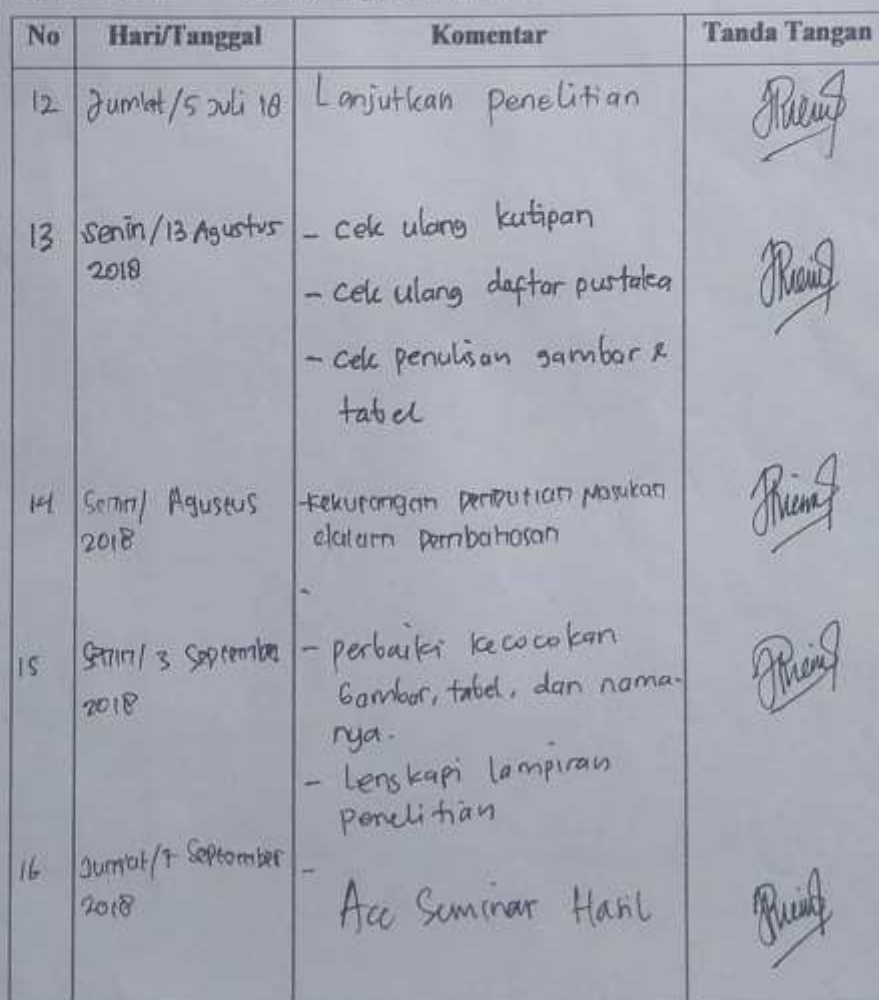 No Hari/Tanggal Komentar Tanda Tangan
12 Jum'at/5 Juli 18 Lanjutkan penelitian
13 Senin/13 Agustus - cek ulang kutipan
2018
- cek ulang daftar pustaka
- cek penulisan gambar &
tabel
14 Senin/ Agustus -kekurangan Masukan
2018 dalam pembahasan
-
15 Senin/ 3 September - perbaiki kecocokan
2018 Gambar, tabel, dan nama-
nya.
- Lengkapi lampiran
penelitian
16 Jum'at/7 September -
2018 Acc Seminar Hasil